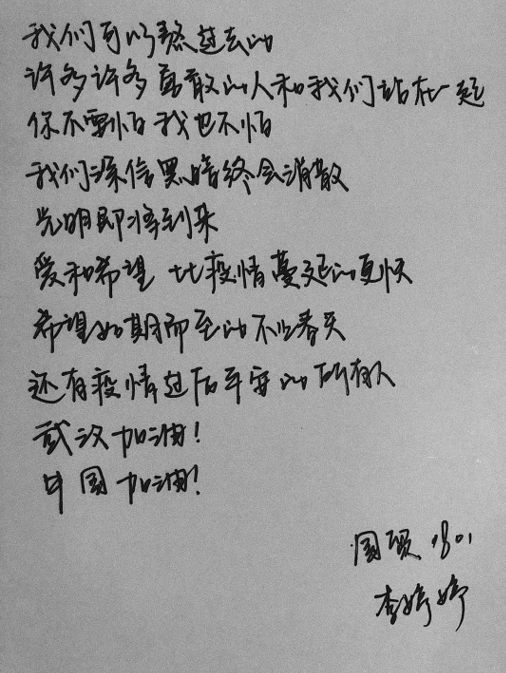 我们可以熬过去的
许多许多勇敢的人和我们站在一起
你不要怕 我也不怕
我们深信黑暗终会消散
光明即将到来
爱和希望 比疫情蔓延的更快
希望如期而至的不止春天
还有疫情过后平安的所有人
武汉加油!
中国加油!
国贸1801
李婷婷